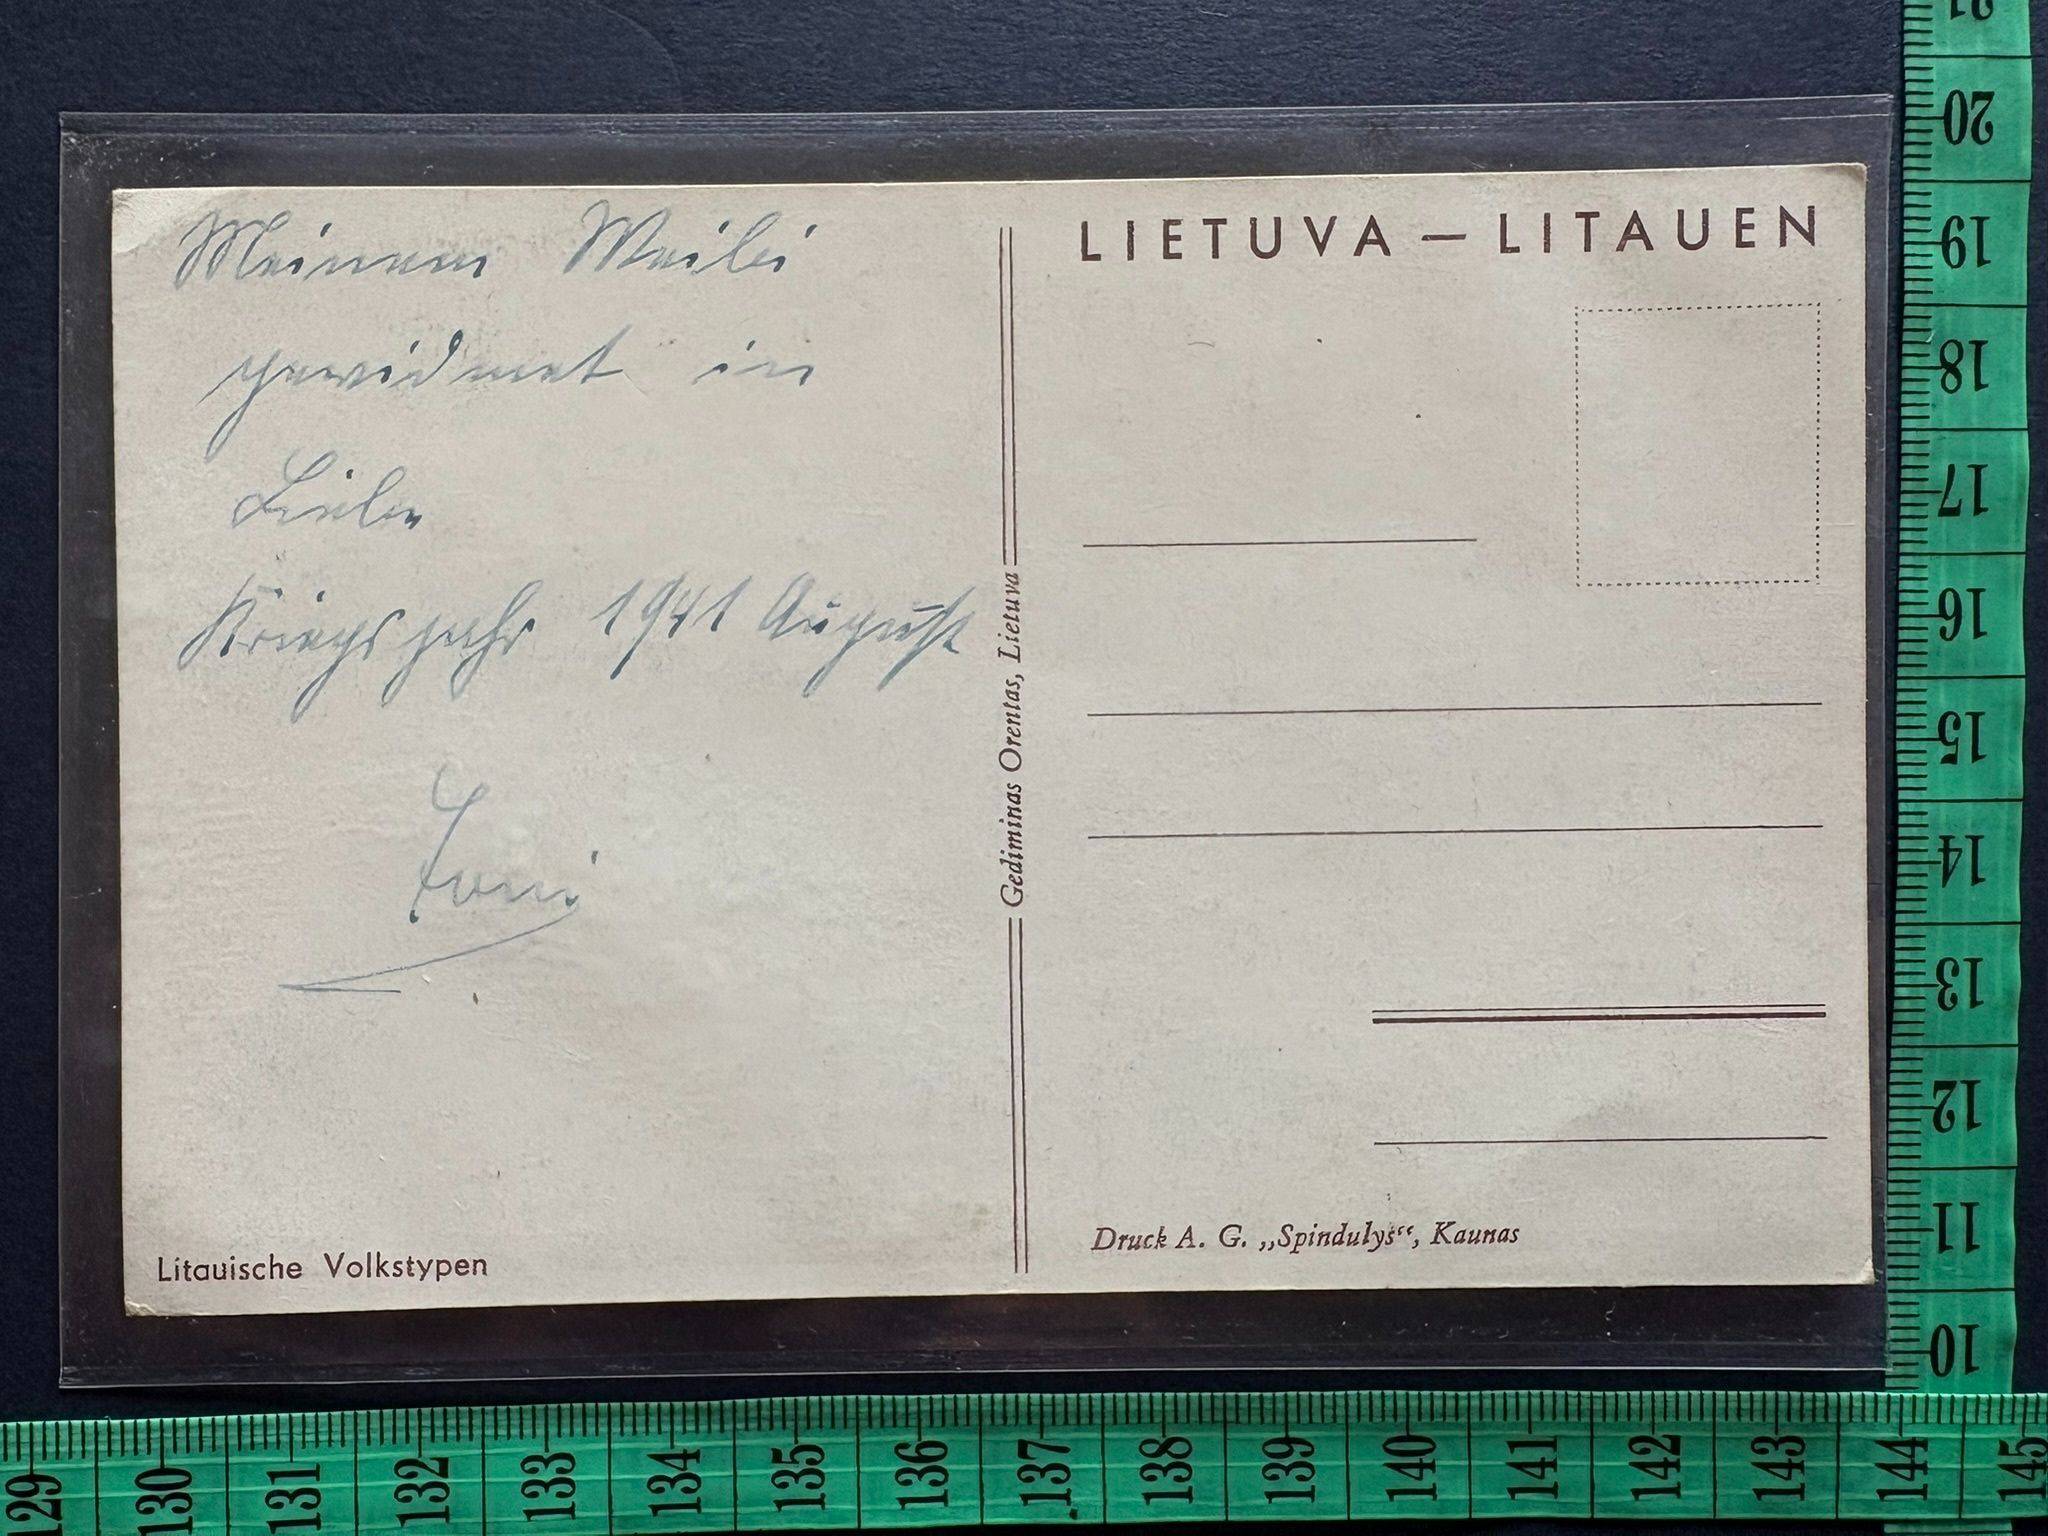 Meinem Weibi
gewidmet in
Liebe
Kriegsjahr 1941 August
Toni
Litauische Volkstypen
Gediminas Orentas, Lietuva
LIETUVA — LITAUEN
Druck A. G. „Spindulys“, Kaunas
21
20
19
18
17
16
15
14
13
12
11
10
129 130 131 132 133 134 135 136 137 138 139 140 141 142 143 144 145